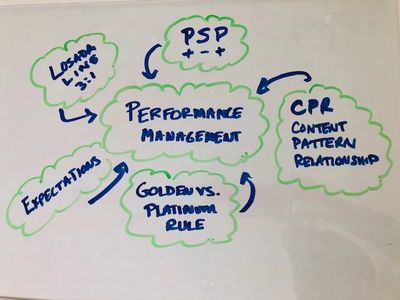 PSP
+ - +
LOSADA
LINE
3:1
PERFORMANCE
MANAGEMENT
CPR
CONTENT
PATTERN
RELATIONSHIP
EXPECTATIONS
GOLDEN VS.
PLATINUM
RULE